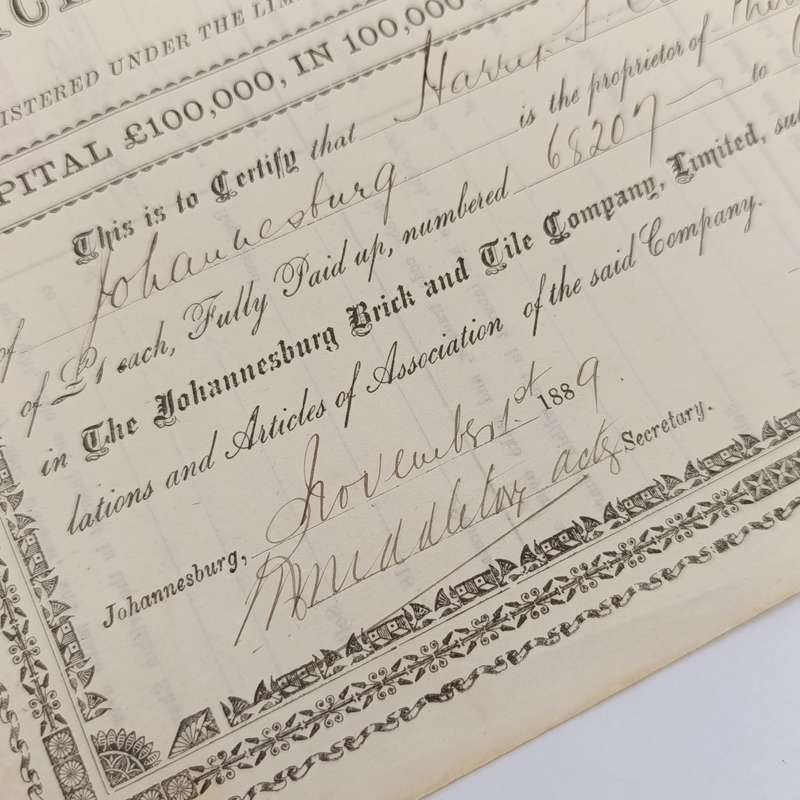 ISTERED UNDER THE LIM
PITAL £100,000, IN 100,000
This is to Certify that Harry
Johannesburg is the proprietor of
of £1 each, Fully Paid up, numbered 68207 to
in The Johannesburg Brick and Tile Company, Limited, su
lations and Articles of Association of the said Company.
Johannesburg, November 1st 1889.
Middleton actg Secretary.